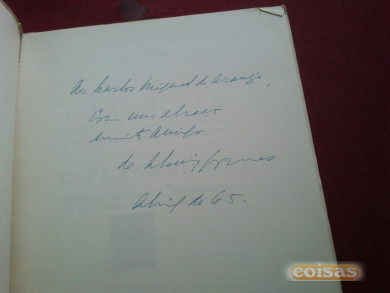 Ao Carlos Miguel de Araujo,
Com um abraço
muito Amigo
de
Abril de 65.
coisas